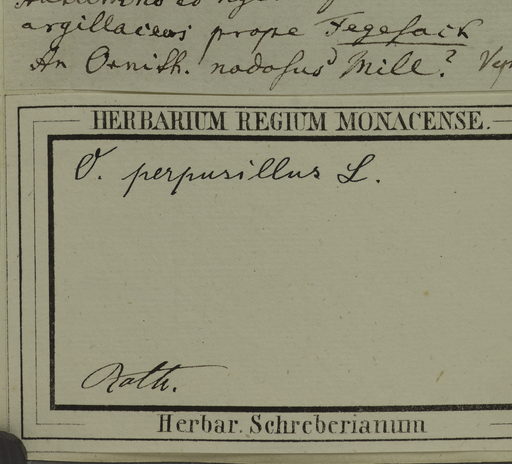 argillaceis prope Fegesack
An Ornith. nodosus Mill.?
HERBARIUM REGIUM MONACENSE.
O. perpusillus L.
Roth.
Herbar. Schreberianum